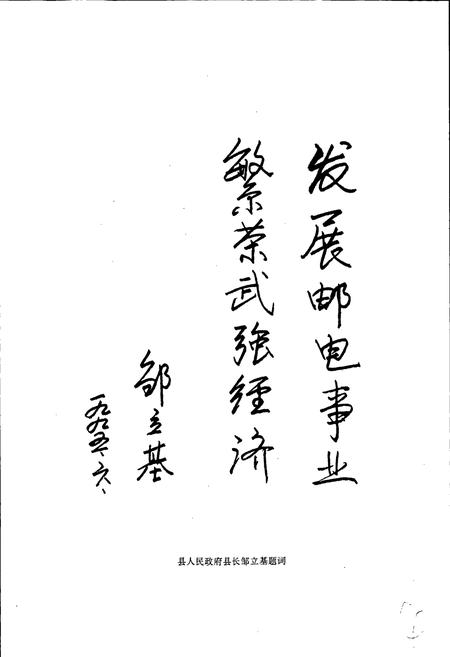 发展邮电事业
繁荣武强经济
邹立基
一九九五、六、
县人民政府县长邹立基题词